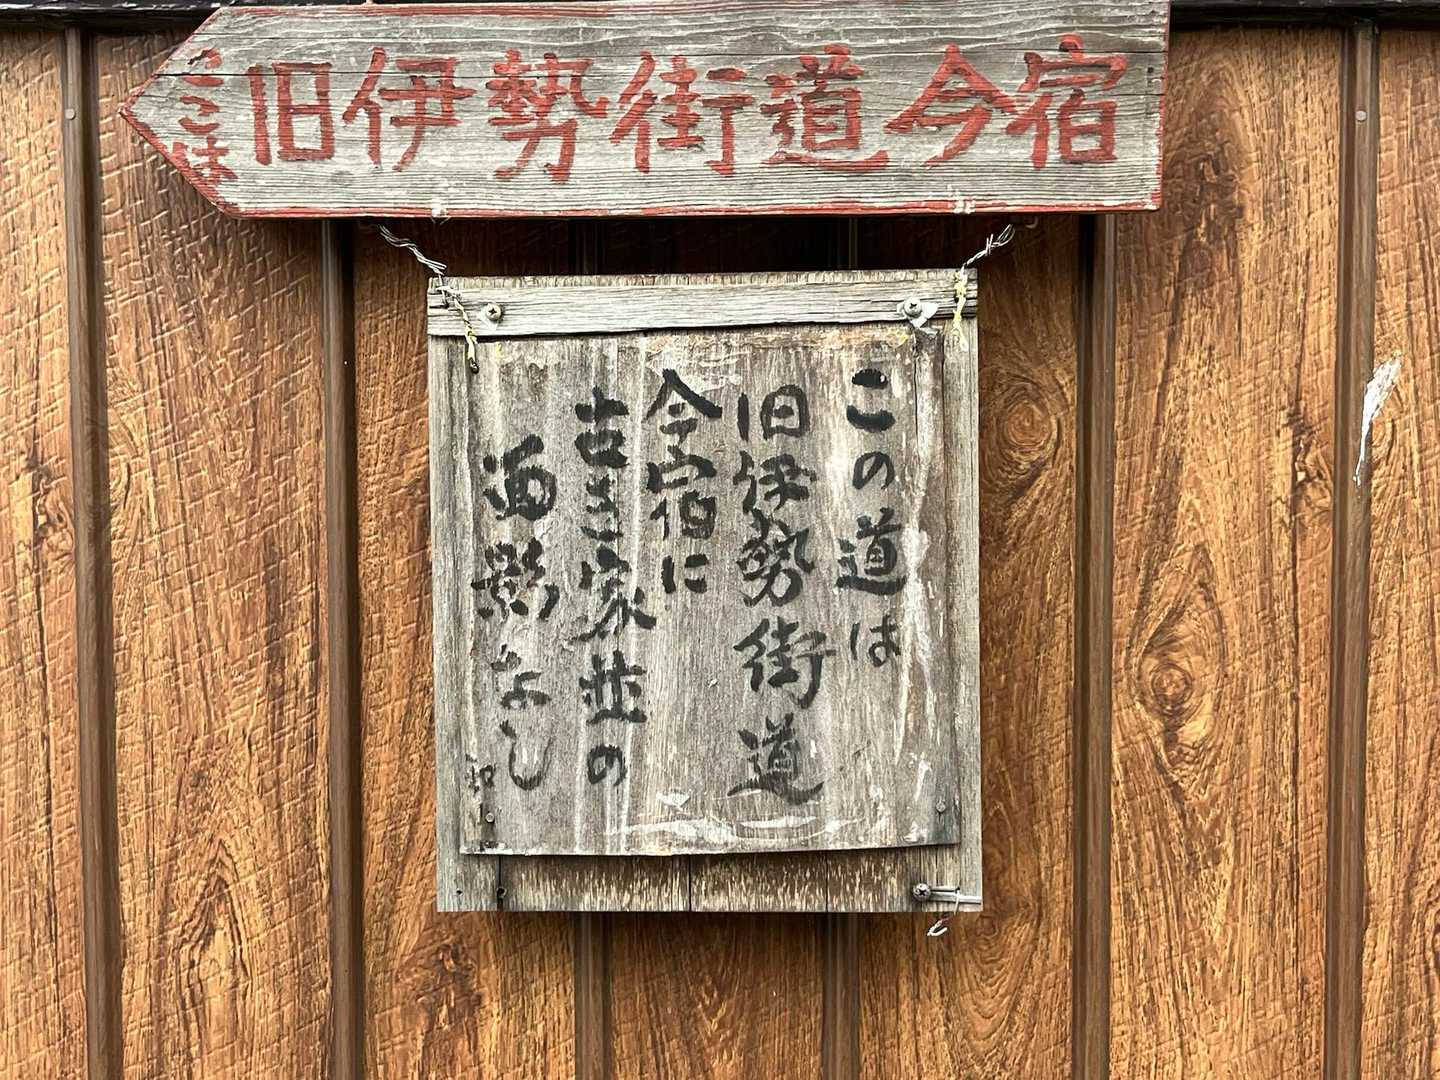 ここは
旧伊勢街道今宿
この道は
旧伊勢街道
今宿に
古き家並の
面影なし